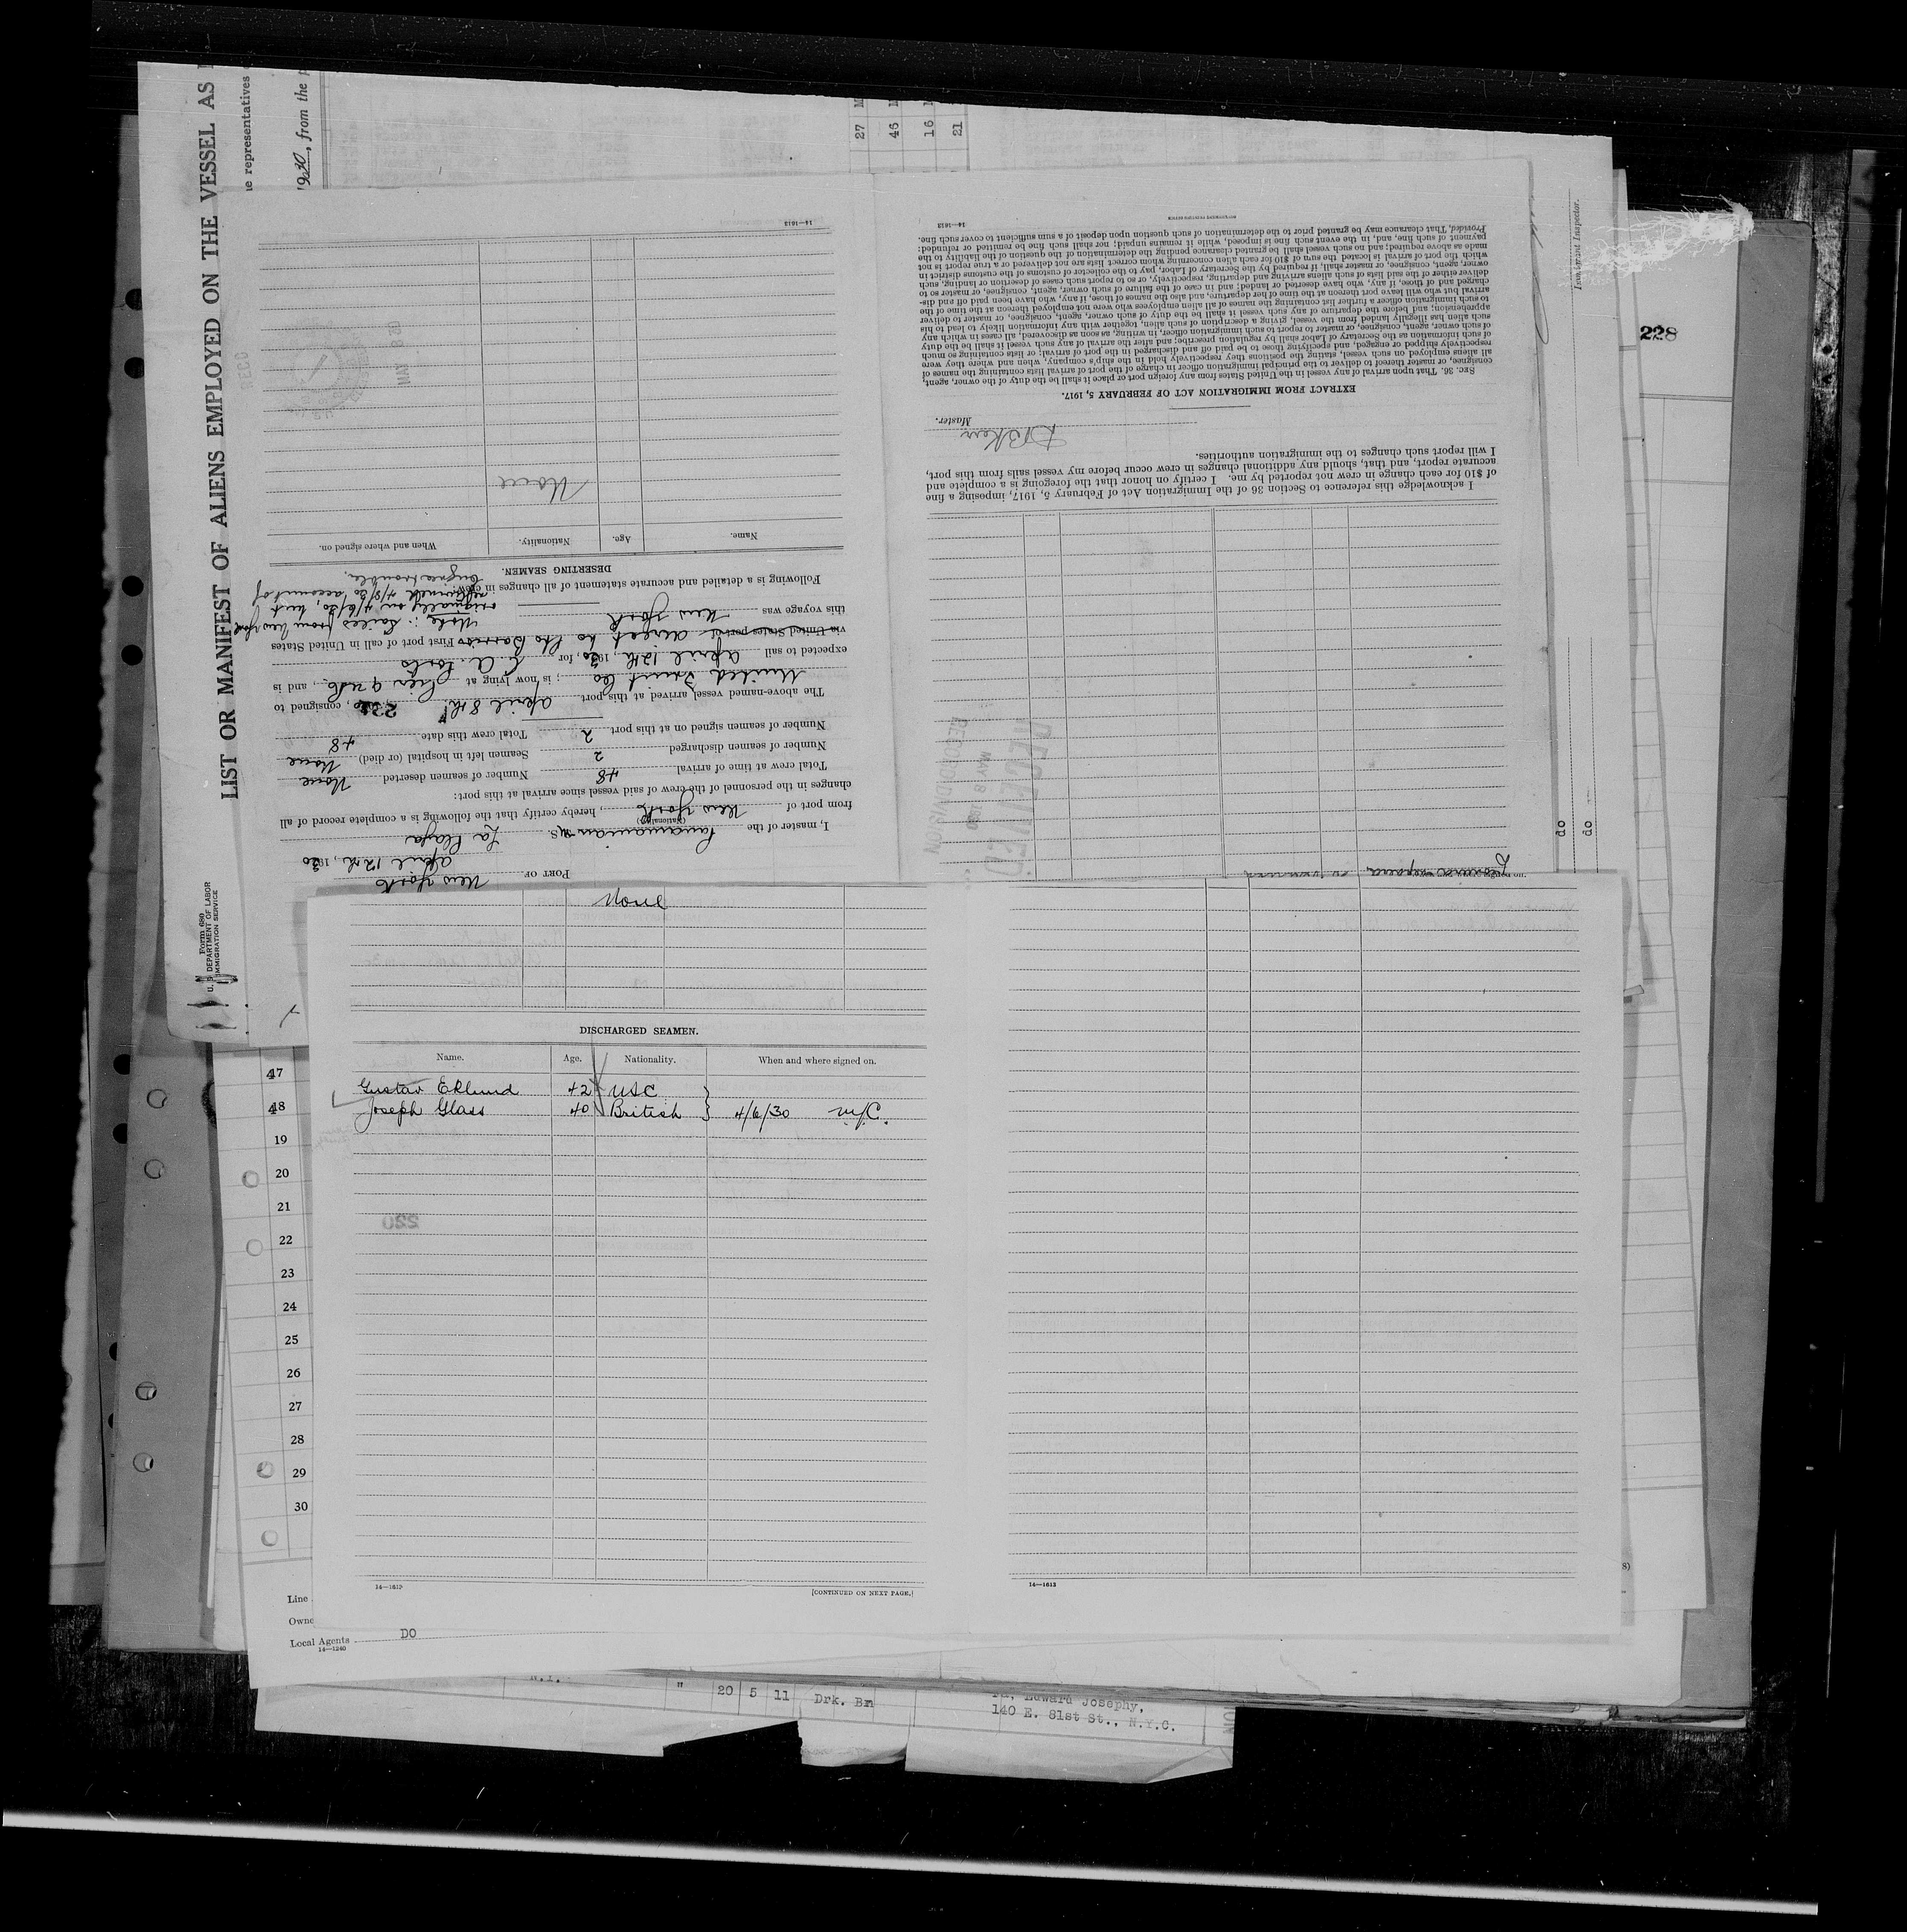 LIST OR MANIFEST OF ALIENS EMPLOYED ON THE VESSEL AS
Form 680
U. S. DEPARTMENT OF LABOR
IMMIGRATION SERVICE
e representatives
1930, from the p
27 M
46
16
21
228
Immigrant Inspector.
do
do
PORT OF New York
April 12th, 1930
I, master of the Panamanian S.S. La Playa
(Nationality)
from port of New York, hereby certify that the following is a complete record of all
changes in the personnel of the crew of said vessel since arrival at this port:
Total crew at time of arrival 48 Number of seamen deserted None
Number of seamen discharged 2 Seamen left in hospital (or died) None
Number of seamen signed on at this port 2 Total crew this date 48
The above-named vessel arrived at this port April 8th, consigned to
United Fruit Co; is now lying at Pier 9 N.R., and is
expected to sail April 12th, 1930, for
via United States port of direct to Pto Barrios First port of call in United States
this voyage was New York
Note: Sailed from New York
originally on 4/6/30, but
returned 4/8/30 account of
engine trouble.
Following is a detailed and accurate statement of all changes in crew:
DESERTING SEAMEN.
Name. Age. Nationality. When and where signed on.
None
MAY 8 30
14—1613
I acknowledge this reference to Section 36 of the Immigration Act of February 5, 1917, imposing a fine
of $10 for each change in crew not reported by me. I certify on honor that the foregoing is a complete and
accurate report, and that, should any additional changes in crew occur before my vessel sails from this port,
I will report such changes to the immigration authorities.
Master.
EXTRACT FROM IMMIGRATION ACT OF FEBRUARY 5, 1917.
SEC. 36. That upon arrival of any vessel in the United States from any foreign port or place it shall be the duty of the owner, agent,
consignee, or master thereof to deliver to the principal immigration officer in charge of the port of arrival lists containing the names of
all aliens employed on such vessel, stating the positions they respectively hold in the ship's company, when and where they were
respectively shipped or engaged, and specifying those to be paid off and discharged in the port of arrival; or lists containing so much
of such information as the Secretary of Labor shall by regulation prescribe; and after the arrival of any such vessel it shall be the duty
of such owner, agent, consignee, or master to report to such immigration officer, in writing, as soon as discovered, all cases in which any
such alien has illegally landed from the vessel, giving a description of such alien, together with any information likely to lead to his
apprehension; and before the departure of any such vessel it shall be the duty of such owner, agent, consignee, or master to deliver
to such immigration officer a further list containing the names of all alien employees who were not employed thereon at the time of the
arrival but who will leave port thereon at the time of her departure, and also the names of those, if any, who have been paid off and dis-
charged and of those, if any, who have deserted or landed; and in case of the failure of such owner, agent, consignee, or master so to
deliver either of the said lists of such aliens arriving and departing, respectively, or so to report such cases of desertion or landing, such
owner, agent, consignee, or master shall, if required by the Secretary of Labor, pay to the collector of customs of the customs district in
which the port of arrival is located the sum of $10 for each alien concerning whom correct lists are not delivered or a true report is not
made as above required; and no such vessel shall be granted clearance pending the determination of the question of the liability to the
payment of such fine, and, in the event such fine is imposed, while it remains unpaid; nor shall such fine be remitted or refunded:
Provided, That clearance may be granted prior to the determination of such question upon deposit of a sum sufficient to cover such fine.
14—1613
GOVERNMENT PRINTING OFFICE
RECEIVED
MAY 8 1930
RECORD DIVISION
None
DISCHARGED SEAMEN.
Name. Age. Nationality. When and where signed on.
Gustav Eklund 42 USC
Joseph Glass 40 British 4/6/30 N.Y.C.
220
14—1613
[CONTINUED ON NEXT PAGE.]
14—1613
47
48
19
20
21
22
23
24
25
26
27
28
29
30
Line
Owne
Local Agents DO
14—1240
N.Y. " 20 5 11 Drk. Bn
Edward Josephy,
140 E. 81st St., N.Y.C.